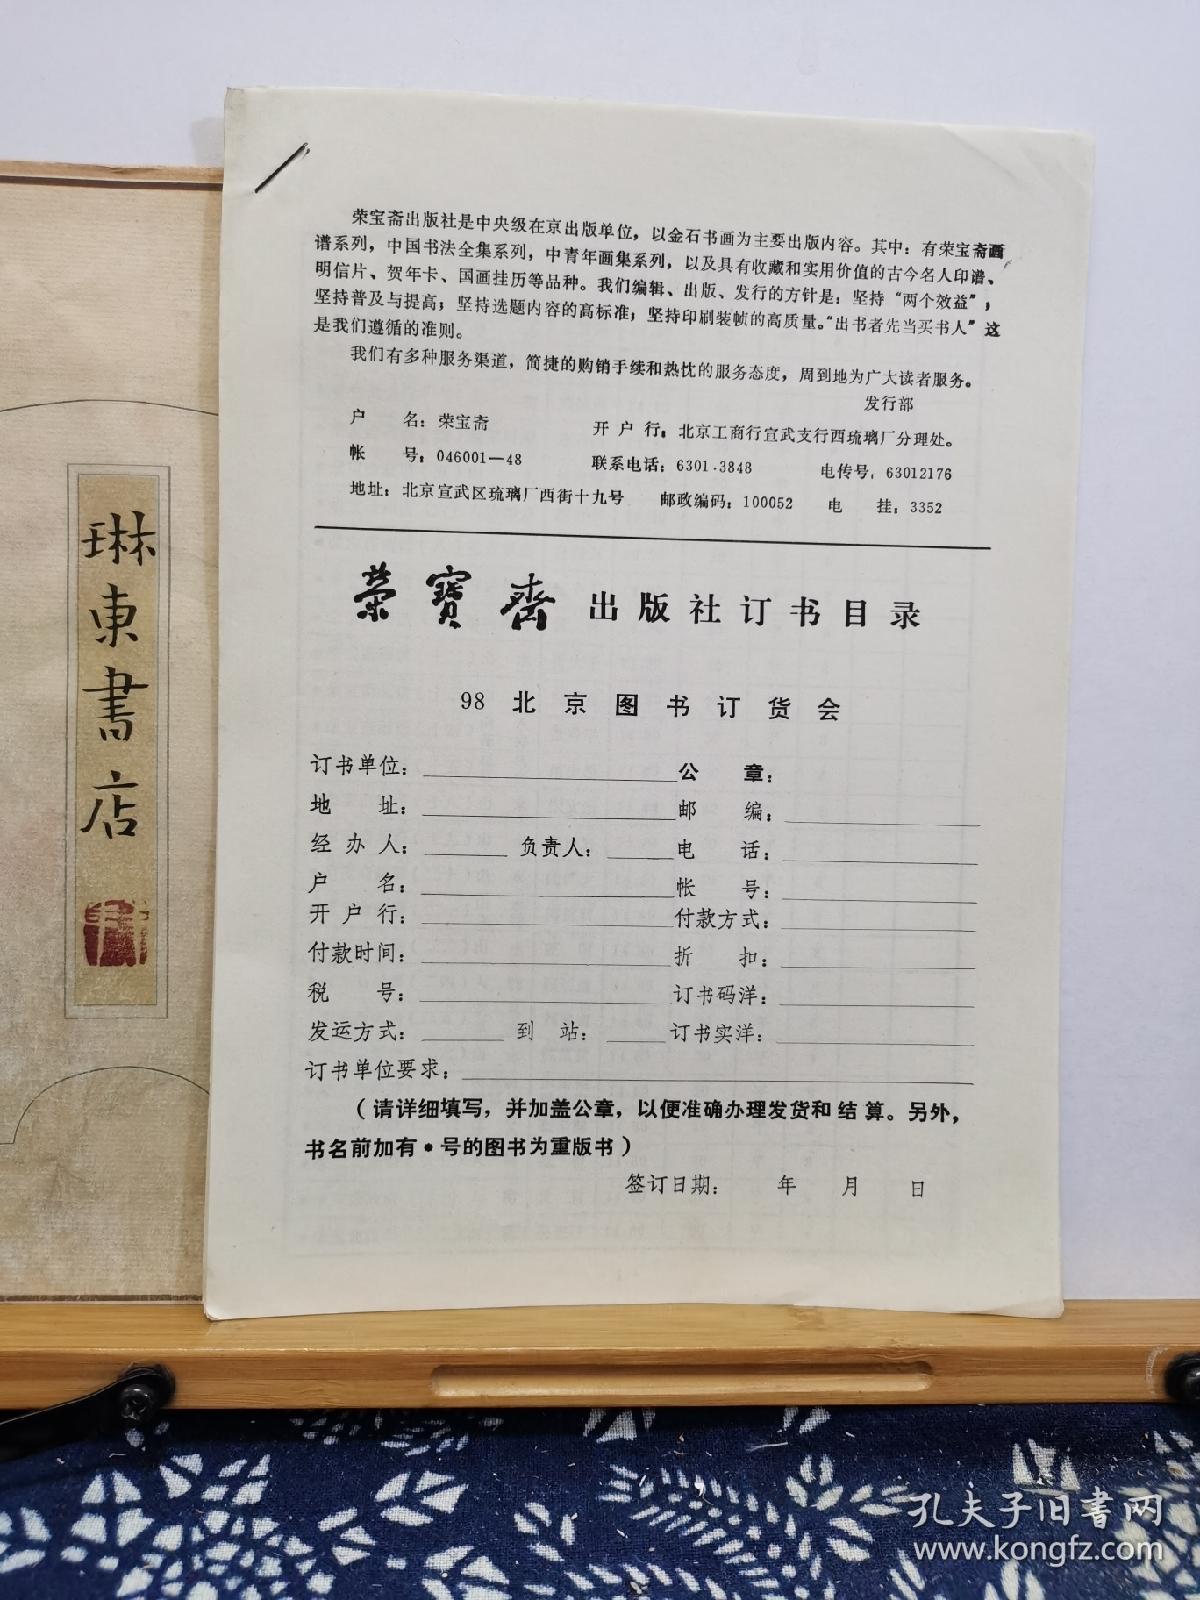 荣宝斋出版社是中央级在京出版单位，以金石书画为主要出版内容。其中：有荣宝斋画
谱系列，中国书法全集系列，中青年画集系列，以及具有收藏和实用价值的古今名人印谱、
明信片、贺年卡、国画挂历等品种。我们编辑、出版、发行的方针是：坚持“两个效益”；
坚持普及与提高；坚持选题内容的高标准；坚持印刷装帧的高质量。“出书者先当买书人”这
是我们遵循的准则。
我们有多种服务渠道，简捷的购销手续和热忱的服务态度，周到地为广大读者服务。
发行部
户　　名：荣宝斋　　开 户 行：北京工商行宣武支行西琉璃厂分理处。
帐　　号：046001—48　　联系电话：6301.3848　　电传号：63012176
地址：北京宣武区琉璃厂西街十九号　邮政编码：100052　电　挂：3352
荣寳齋 出版社订书目录
98 北京图书订货会
订书单位：　公　　章：
地　　址：　邮　　编：
经 办 人：　负责人：　电　　话：
户　　名：　帐　　号：
开 户 行：　付款方式：
付款时间：　折　　扣：
税　　号：　订书码洋：
发运方式：　到　站：　订书实洋：
订书单位要求：
（请详细填写，并加盖公章，以便准确办理发货和结算。另外，
书名前加有•号的图书为重版书）
签订日期：　　年　　月　　日
琳東書店
孔夫子旧書网
www.kongfz.com